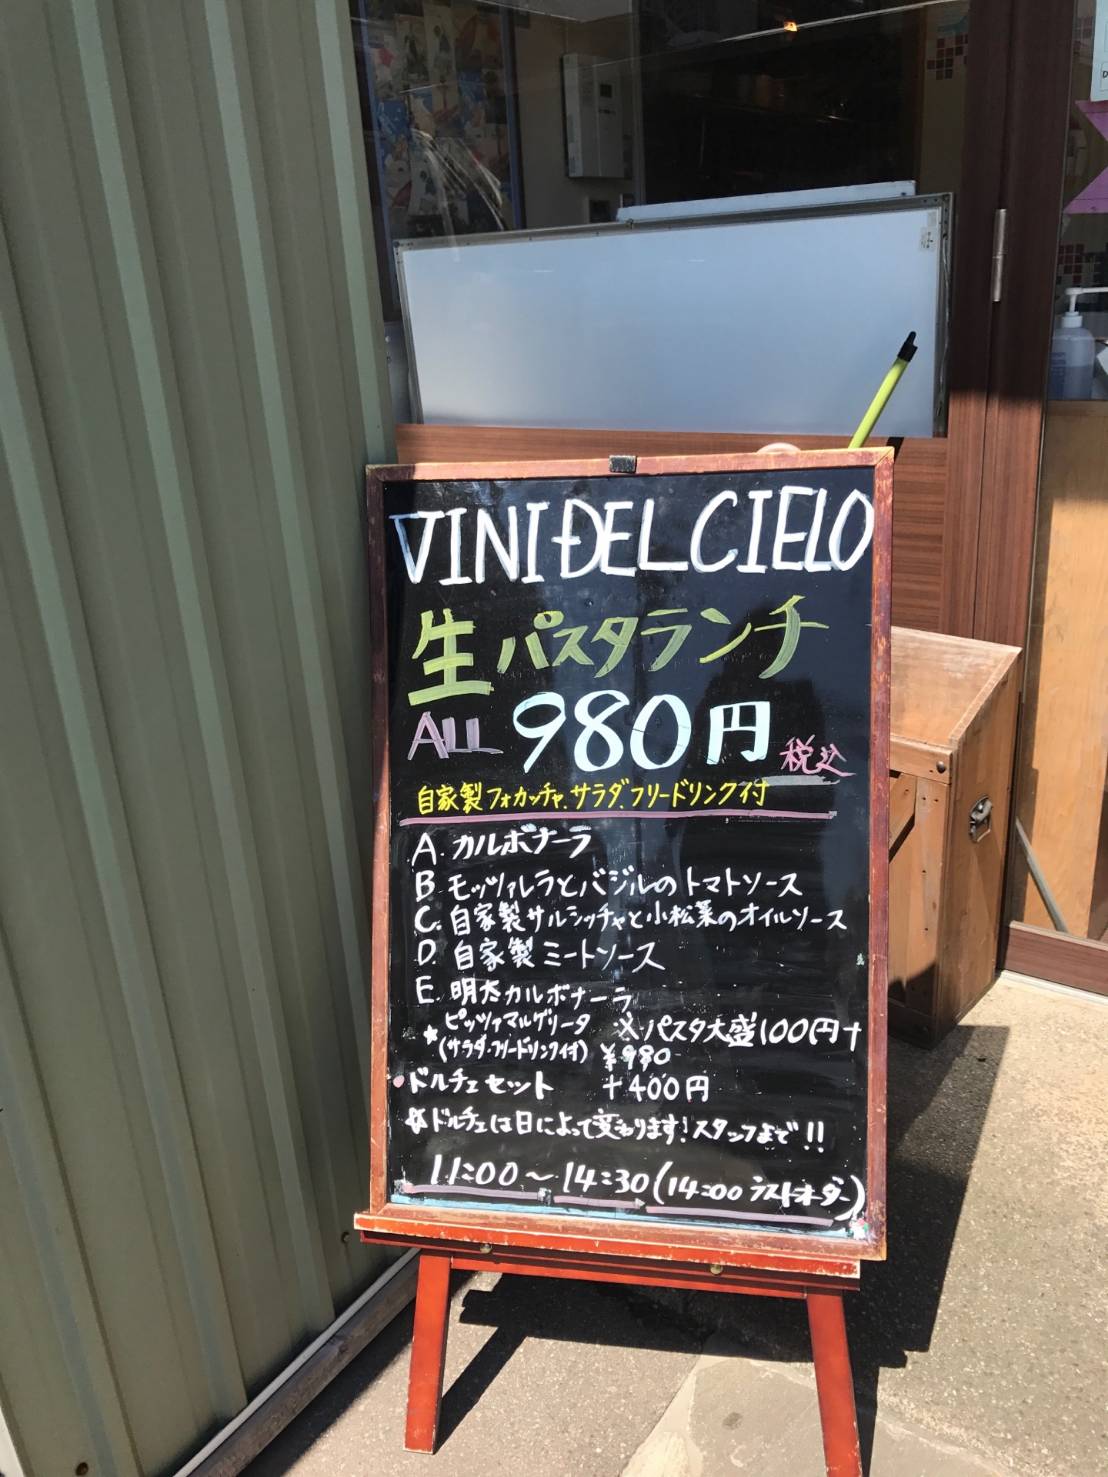 VINI DEL CIELO
生パスタランチ
ALL 980円 税込
自家製フォカッチャ、サラダ、フリードリンク付
A. カルボナーラ
B. モッツァレラとバジルのトマトソース
C. 自家製サルシッチャと小松菜のオイルソース
D. 自家製ミートソース
E. 明太カルボナーラ
★ピッツァマルゲリータ ※パスタ大盛100円+
(サラダ・フリードリンク付) ¥980
・ドルチェセット +400円
☆ドルチェは日によって変わります!スタッフまで!!
11:00～14:30(14:00 ラストオーダー)